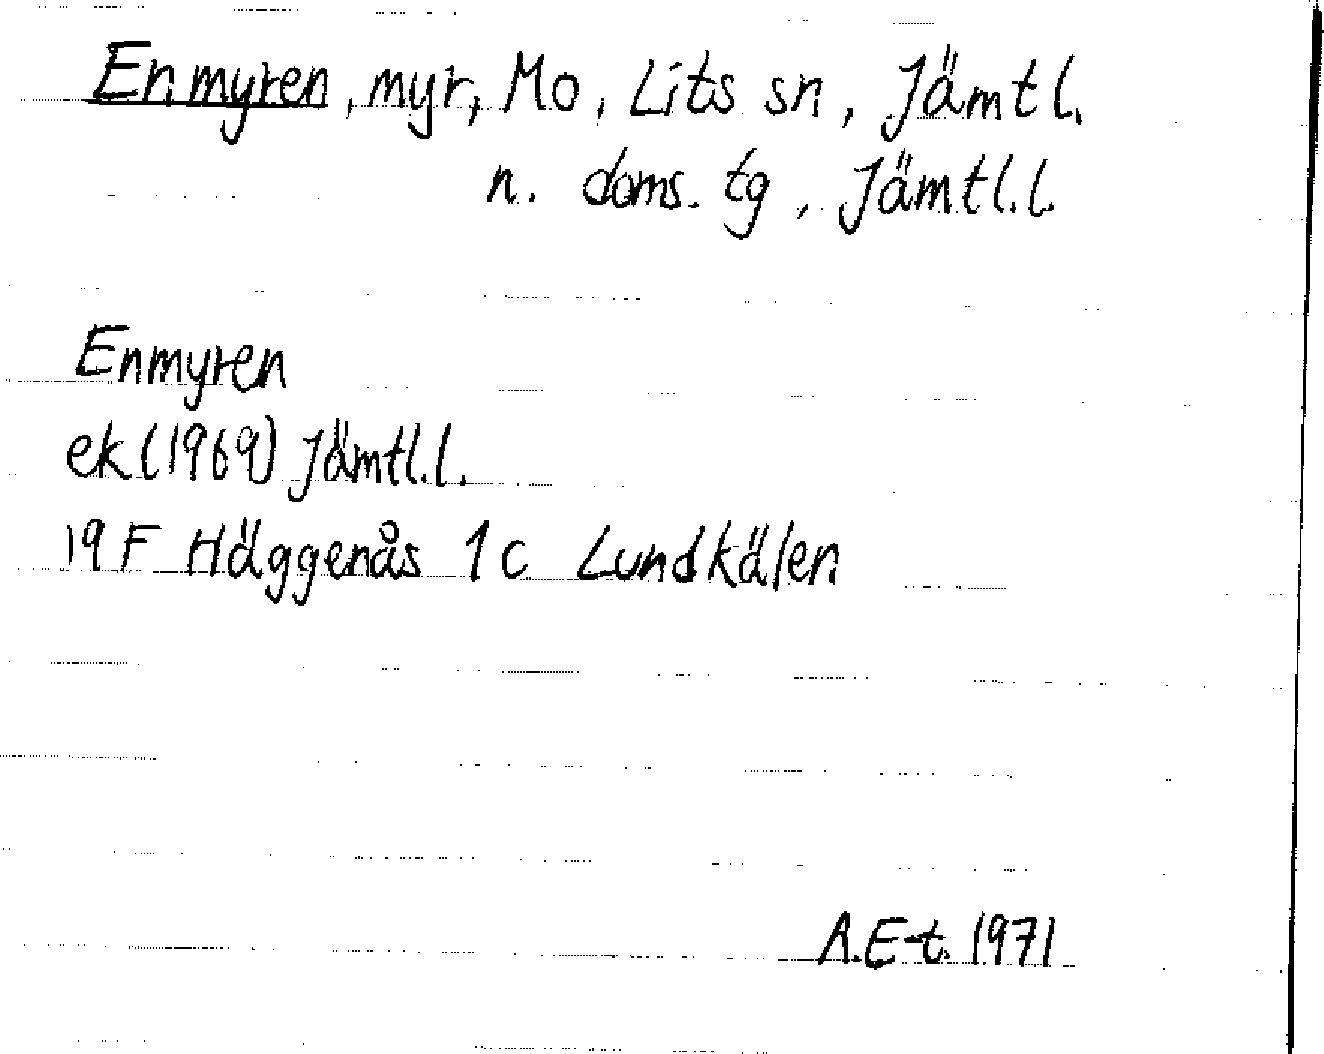 Enmyren, myr, Mo, Lits sn, Jämtl.
n. doms. tg, Jämtl.l.
Enmyren
ek (1969) Jämtl.l.
19 F Häggenås 1c Lundkälen
A.E-t. 1971